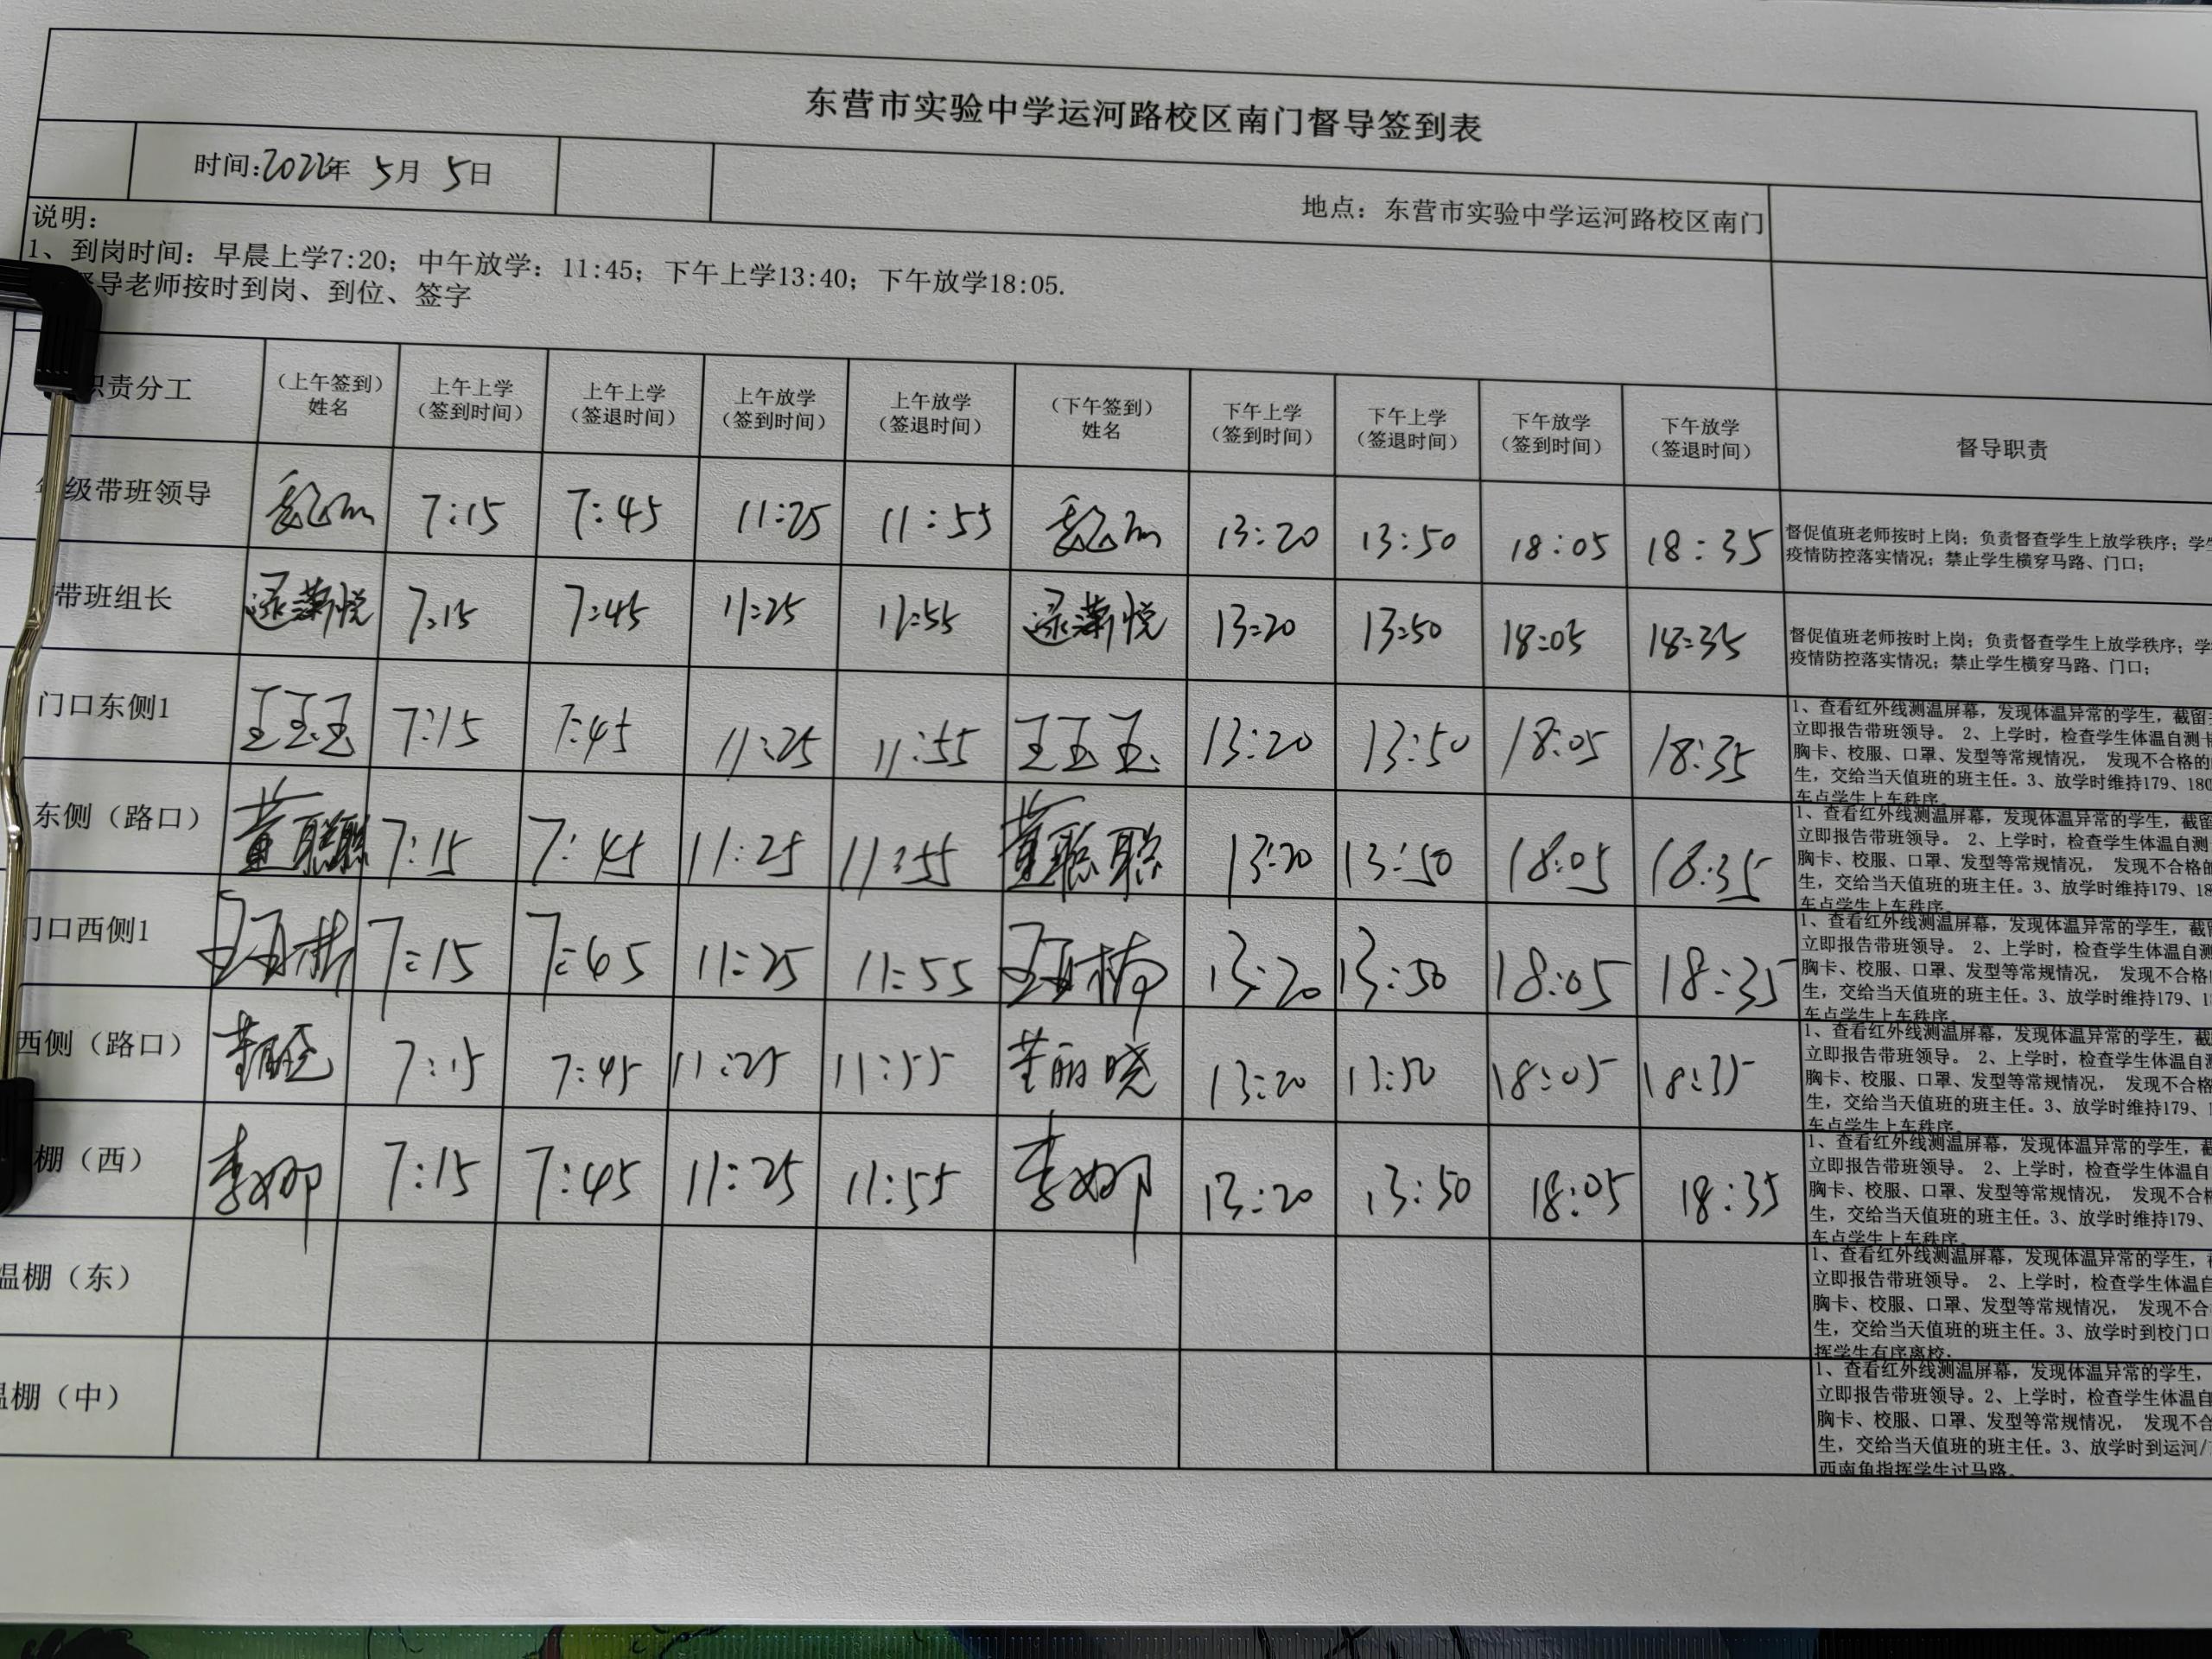 东营市实验中学运河路校区南门督导签到表
时间:2022年 5月 5日
地点：东营市实验中学运河路校区南门
说明：
1、到岗时间：早晨上学7:20；中午放学：11:45；下午上学13:40；下午放学18:05.
督导老师按时到岗、到位、签字
职责分工 （上午签到）姓名 上午上学（签到时间） 上午上学（签退时间） 上午放学（签到时间） 上午放学（签退时间） （下午签到）姓名 下午上学（签到时间） 下午上学（签退时间） 下午放学（签到时间） 下午放学（签退时间） 督导职责
级带班领导 7:15 7:45 11:25 11:55 13:20 13:50 18:05 18:35
督促值班老师按时上岗；负责督查学生上放学秩序；学生
疫情防控落实情况；禁止学生横穿马路、门口；
带班组长 7:15 7:45 11:25 11:55 13:20 13:50 18:05 18:35
督促值班老师按时上岗；负责督查学生上放学秩序；学
疫情防控落实情况；禁止学生横穿马路、门口；
门口东侧1 王玉玉 7:15 7:45 11:25 11:55 王玉玉 13:20 13:50 18:05 18:35
1、查看红外线测温屏幕，发现体温异常的学生，截留
立即报告带班领导。 2、上学时，检查学生体温自测卡
胸卡、校服、口罩、发型等常规情况， 发现不合格的
生，交给当天值班的班主任。3、放学时维持179、180
车点学生上车秩序。
东侧（路口） 董聪聪 7:15 7:45 11:25 11:55 董聪聪 13:20 13:50 18:05 18:35
1、查看红外线测温屏幕，发现体温异常的学生，截留
立即报告带班领导。 2、上学时，检查学生体温自测
胸卡、校服、口罩、发型等常规情况， 发现不合格的
生，交给当天值班的班主任。3、放学时维持179、18
车点学生上车秩序。
门口西侧1 7:15 7:45 11:25 11:55 13:20 13:50 18:05 18:35
1、查看红外线测温屏幕，发现体温异常的学生，截
立即报告带班领导。 2、上学时，检查学生体温自测
胸卡、校服、口罩、发型等常规情况， 发现不合格
生，交给当天值班的班主任。3、放学时维持179、1
车点学生上车秩序。
西侧（路口） 董丽晓 7:15 7:45 11:25 11:55 董丽晓 13:20 13:50 18:05 18:35
1、查看红外线测温屏幕，发现体温异常的学生，截
立即报告带班领导。 2、上学时，检查学生体温自
胸卡、校服、口罩、发型等常规情况， 发现不合格
生，交给当天值班的班主任。3、放学时维持179、
车点学生上车秩序。
棚（西） 李娜 7:15 7:45 11:25 11:55 李娜 13:20 13:50 18:05 18:35
1、查看红外线测温屏幕，发现体温异常的学生，
立即报告带班领导。 2、上学时，检查学生体温自
胸卡、校服、口罩、发型等常规情况， 发现不合格
生，交给当天值班的班主任。3、放学时维持179、
车点学生上车秩序。
温棚（东）
1、查看红外线测温屏幕，发现体温异常的学生，
立即报告带班领导。 2、上学时，检查学生体温自
胸卡、校服、口罩、发型等常规情况， 发现不合
生，交给当天值班的班主任。3、放学时到校门口
挥学生有序离校；
温棚（中）
1、查看红外线测温屏幕，发现体温异常的学生，
立即报告带班领导。2、上学时，检查学生体温自
胸卡、校服、口罩、发型等常规情况， 发现不合
生，交给当天值班的班主任。3、放学时到运河/
西南角指挥学生过马路。